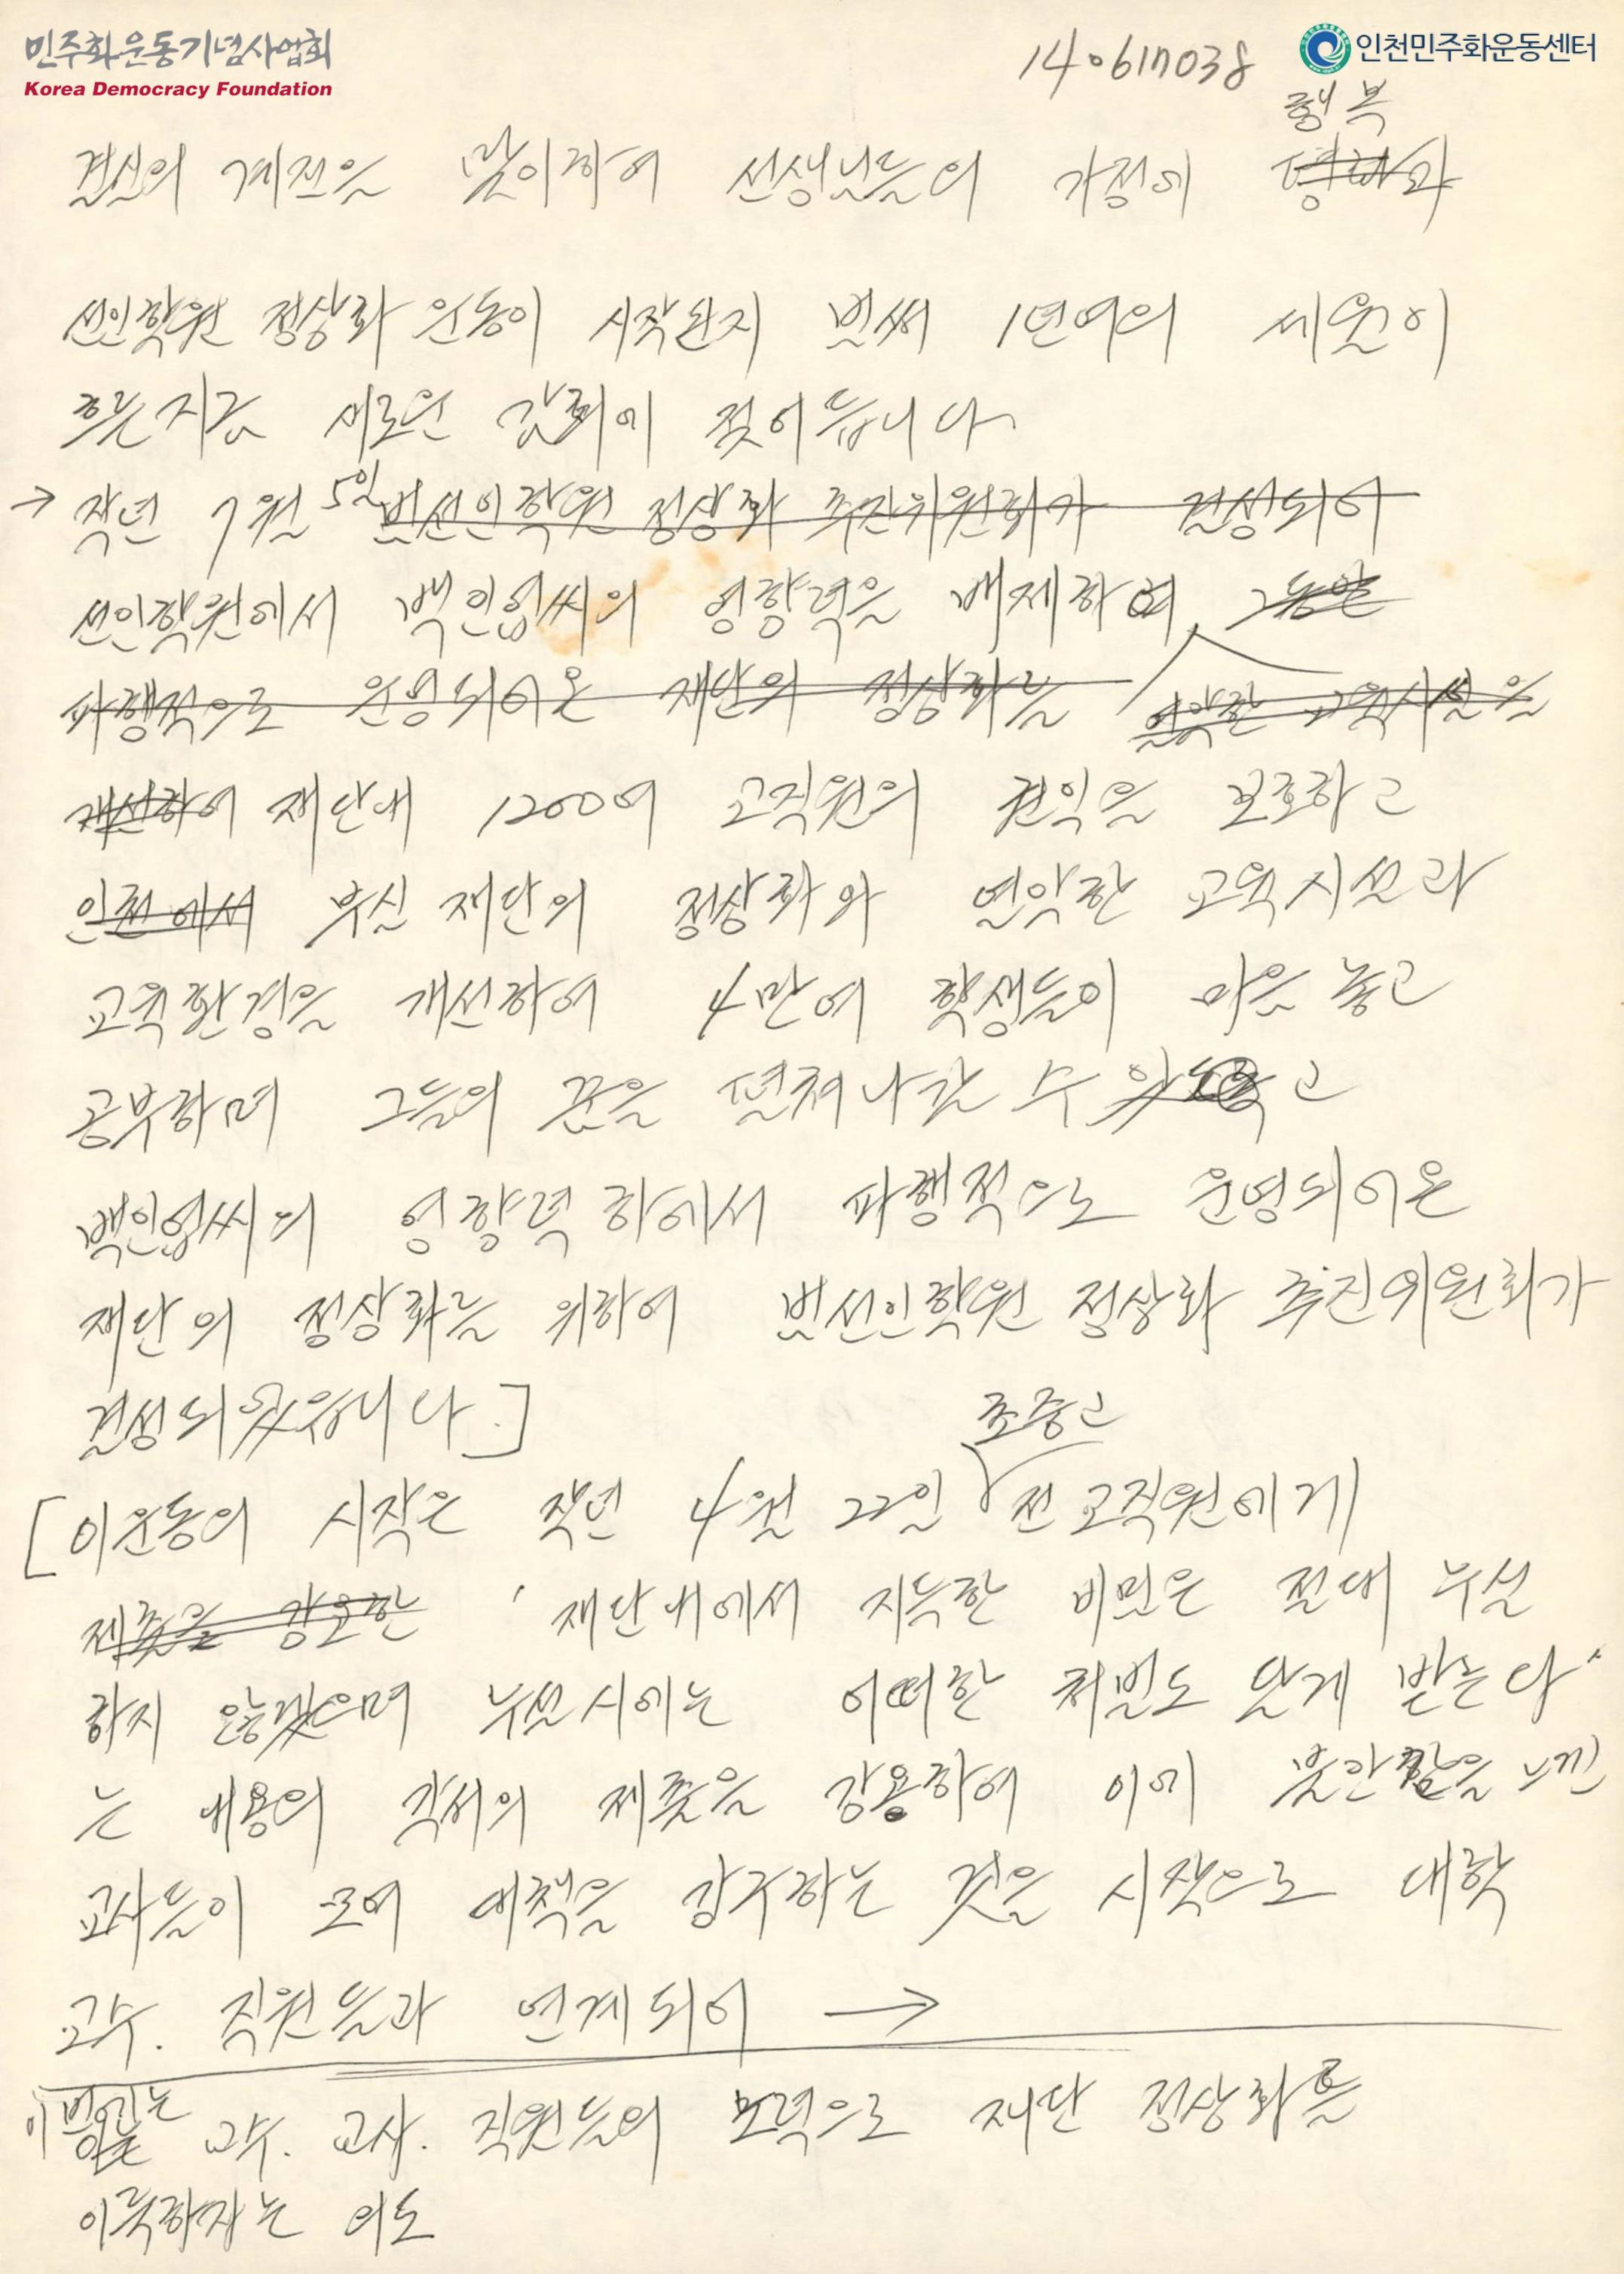 민주화운동기념사업회
Korea Democracy Foundation
14.617038
인천민주화운동센터
행복
결실의 계절을 맞이하여 선생님들의 가정에 평화과
선인학원 정상화 운동이 시작된지 벌써 1년여의 세월이
흐른지금 새로운 감회에 젖어듭니다
→ 작년 7월 5일 범선인학원 정상화 추진위원회가 결성되어
선인학원에서 백인엽씨의 영향력을 배제하여 그동안
파행적으로 운영되어온 재단의 정상화를 열악한 교육시설을
개선하여 재단내 1200여 교직원의 권익을 보호하고
인천에서 부실 재단의 정상화와 열악한 교육시설과
교육환경을 개선하여 4만여 학생들이 마음 놓고
공부하며 그들의 꿈을 펼쳐나갈 수 있 고
백인엽씨의 영향력 하에서 파행적으로 운영되어온
재단의 정상화를 위하여 범선인학원 정상화 추진위원회가
결성되었읍니다.]
초중고
[이운동의 시작은 작년 4월 22일 전 교직원에게
제출을 강요한 '재단내에서 지득한 비밀은 절대 누설
하지 않겠으며 누설시에는 어떠한 처벌도 달게 받는다'
는 내용의 각서의 제출을 강용하여 이에 불안함을 느낀
교사들이 모여 대책을 강구하는 것을 시작으로 대학
교수. 직원들과 연계되어 →
이 교수. 교사. 직원들의 노력으로 재단 정상화를
이룩하자는 의도